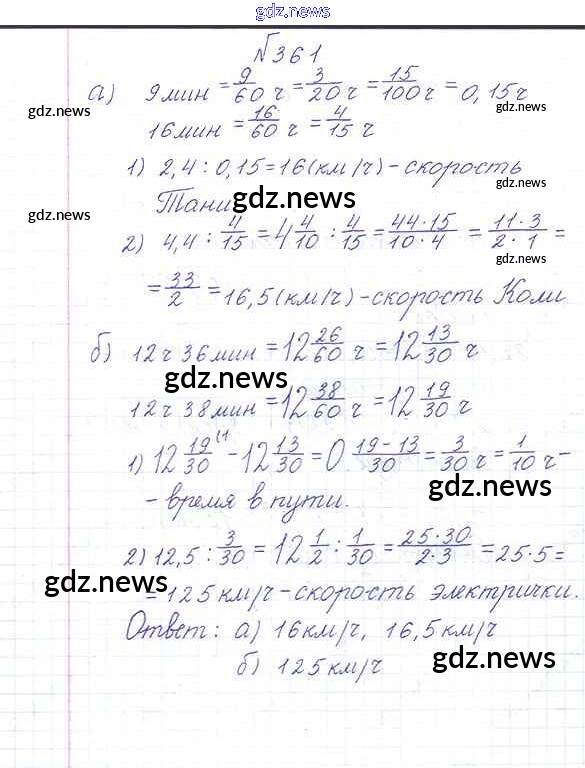 gdz.news
№361
а) 9 мин = 9/60 ч = 3/20 ч = 15/100 ч = 0,15 ч
gdz.news gdz.news
16 мин = 16/60 ч = 4/15 ч
1) 2,4 : 0,15 = 16 (км/ч) - скорость
gdz.news
Тани
gdz.news
gdz.news
2) 4,4 : 4/15 = 4 4/10 : 4/15 = 44·15/10·4 = 11·3/2·1 =
= 33/2 = 16,5 (км/ч) - скорость Коли
б) 12 ч 36 мин = 12 26/60 ч = 12 13/30 ч
gdz.news
12 ч 38 мин = 12 38/60 ч = 12 19/30 ч
1) 12 19/30 (1 - 12 13/30 = 0 19-13/30 = 3/30 ч = 1/10 ч -
gdz.news
- время в пути.
2) 12,5 : 3/30 = 12 1/2 : 1/30 = 25·30/2·3 = 25·5 =
gdz.news
= 125 км/ч - скорость электрички.
Ответ: а) 16 км/ч, 16,5 км/ч
б) 125 км/ч
gdz.news